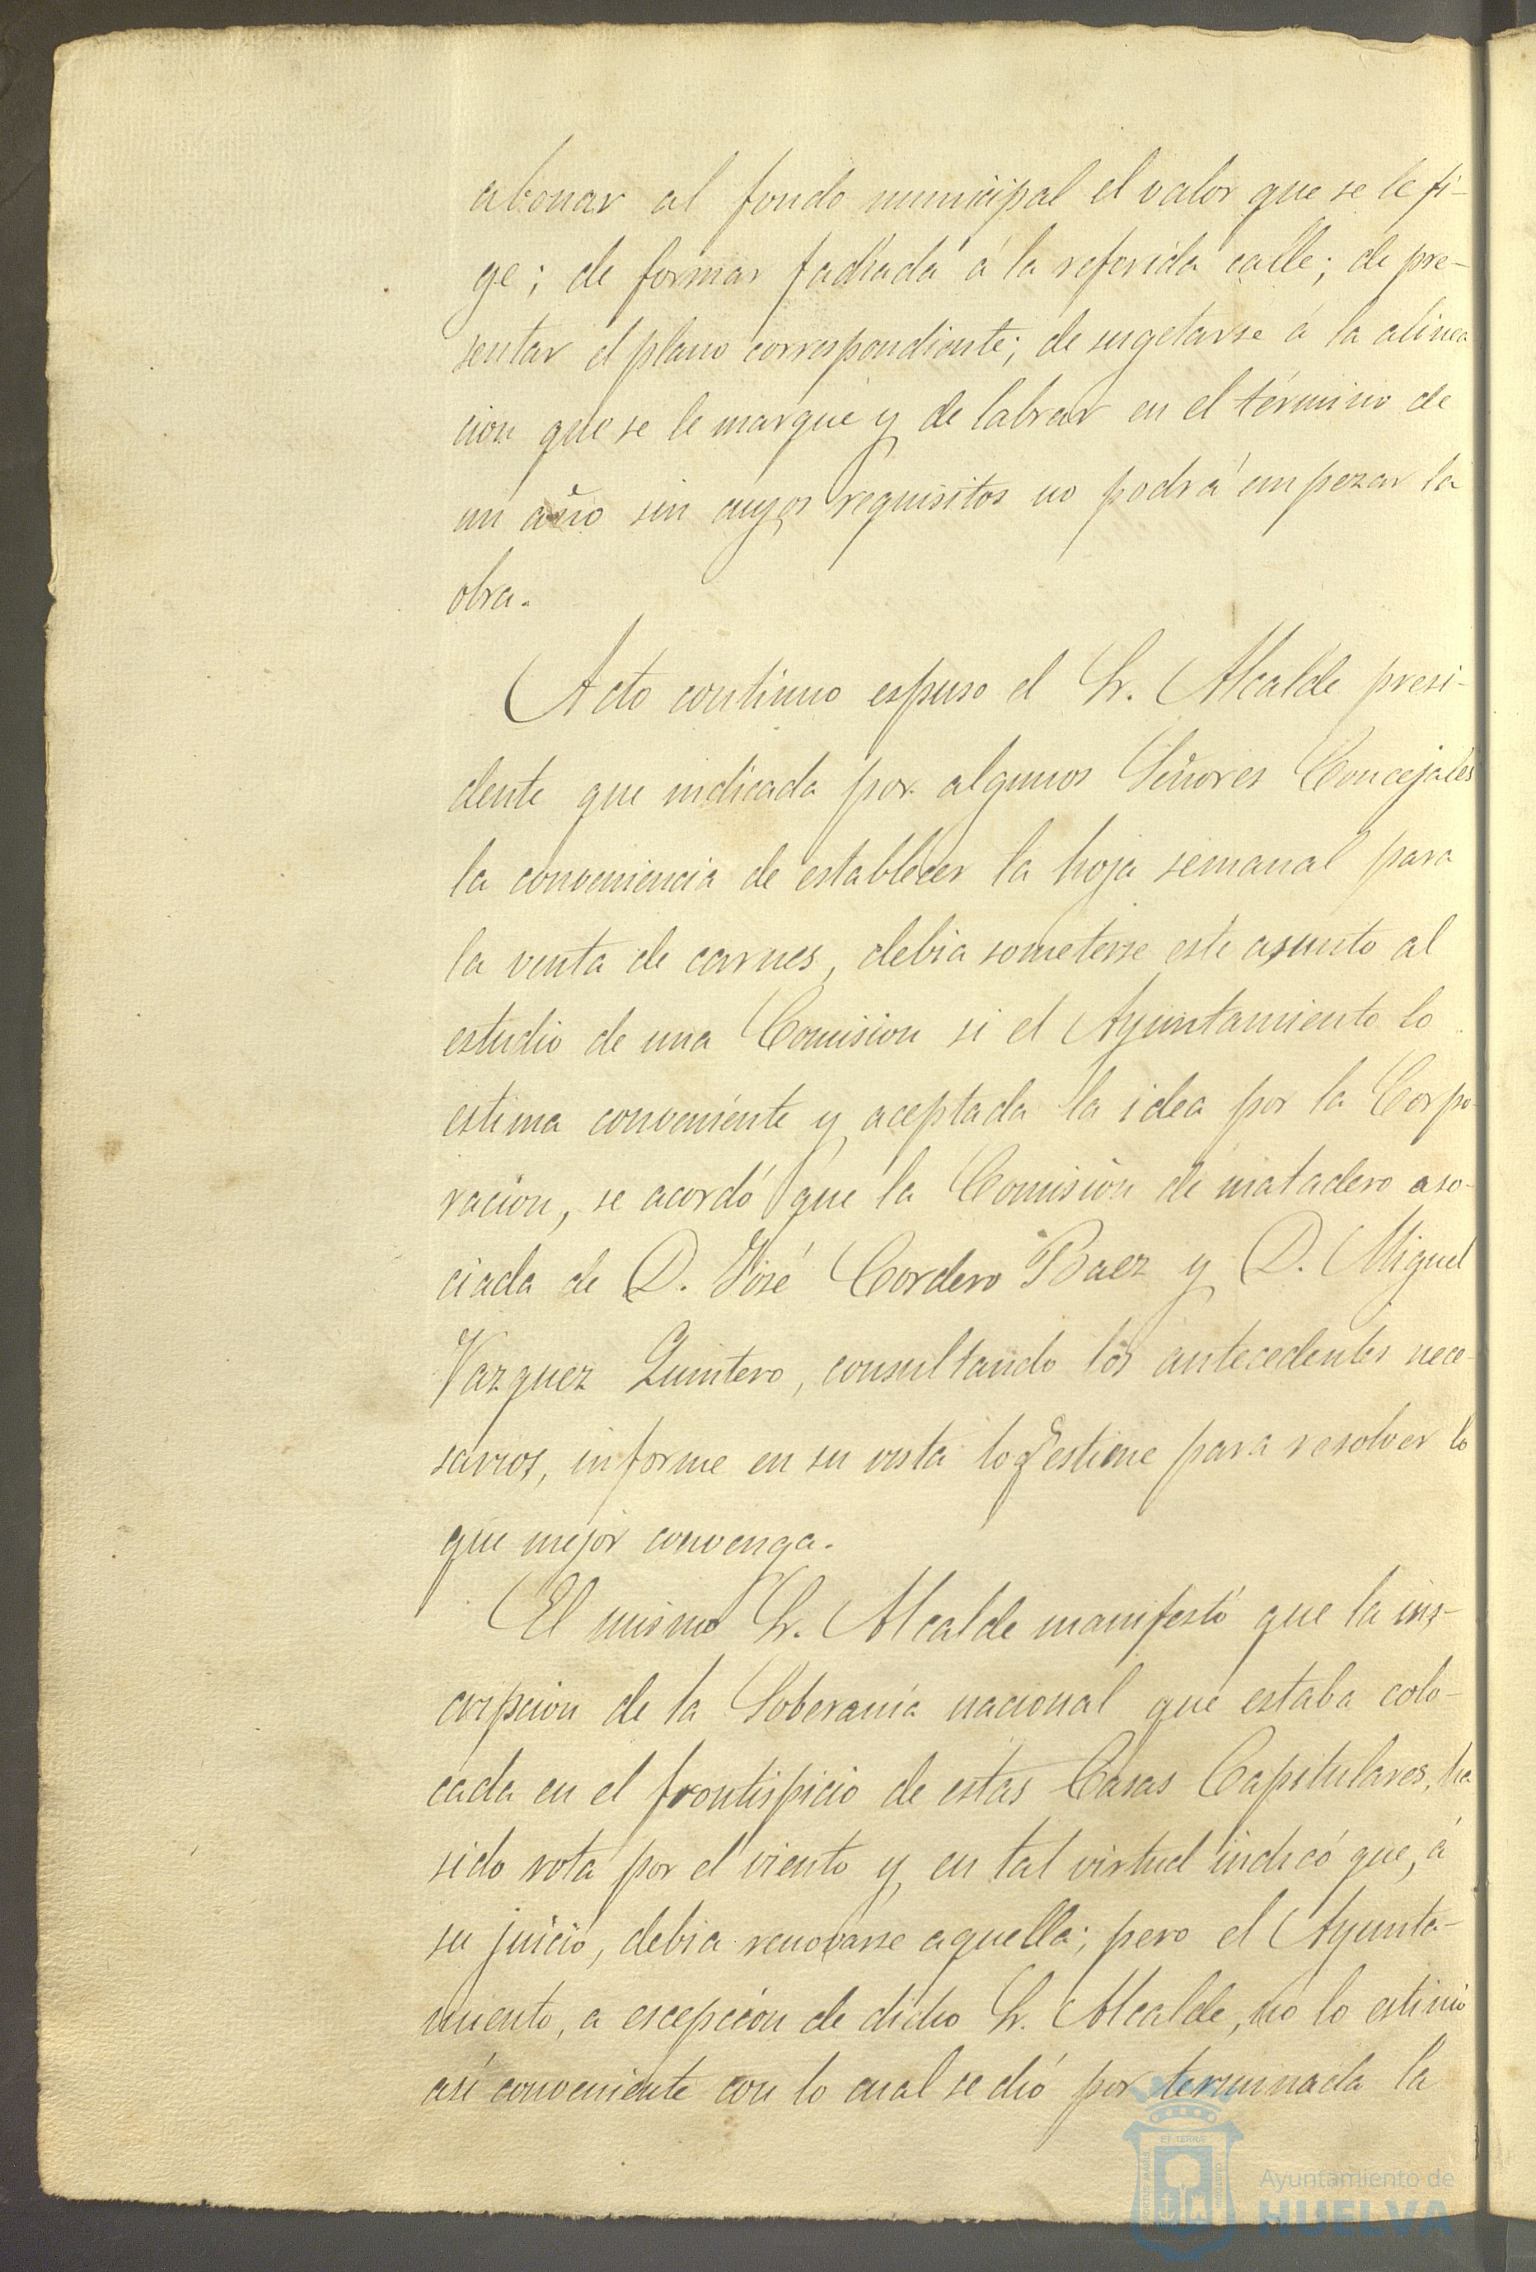 abonar al fondo municipal el valor que se le fi-
ge; de formar fachada á la referida calle; de pre-
sentar el plano correspondiente; de sugetarse á la alinea
cion que se le marque y de labrar en el término de
un año sin cuyos requisitos no podrá empezar la
obra.
Acto continuo espuso el Sr. Alcalde presi-
dente que indicada por algunos Señores Concejales
la conveniencia de establecer la hoja semanal para
la venta de carnes, debia someterse este asunto al
estudio de una Comision si el Ayuntamiento lo
estima conveniente y aceptada la idea por la Corpo-
racion, se acordó que la Comision de matadero aso-
ciada de D. José Cordero Baez y D. Miguel
Vazquez Quintero, consultando los antecedentes nece-
sarios, informe en su vista lo q estime para resolver lo
que mejor convenga.
El mismo Sr. Alcalde manifestó que la ins-
cripcion de la Soberanía nacional que estaba colo-
cada en el frontispicio de estas Casas Capitulares, ha
sido rota por el viento y en tal virtud indicó que, á
su juicio, debia renovarse aquella; pero el Ayunta-
miento, a escepcion de dicho Sr. Alcalde, no lo estimó
así conveniente con lo cual se dió por terminada la
Ayuntamiento de
HUELVA